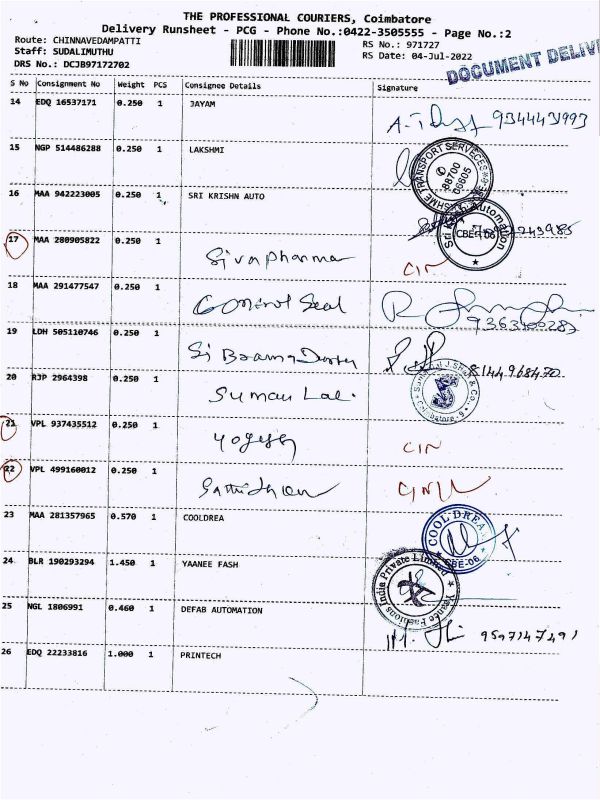 THE PROFESSIONAL COURIERS, Coimbatore
Delivery Runsheet - PCG - Phone No.:0422-3505555 - Page No.:2
Route: CHINNAVEDAMPATTI
Staff: SUDALIMUTHU
DRS No.: DCJB97172702
RS No.: 971727
RS Date: 04-Jul-2022
DOCUMENT DELIV
S No Consignment No Weight PCS Consignee Details Signature
14 EDQ 16537171 0.250 1 JAYAM
9344431993
15 NGP 514486288 0.250 1 LAKSHMI
TRANSPORT SERVECES
88700
06805
16 MAA 942223005 0.250 1 SRI KRISHN AUTO
Sri Automation
CBE-06
17 MAA 280905822 0.250 1 Siva pharma CIN
18 MAA 291477547 0.250 1 Control Seal
19 LDH 505110746 0.250 1
8144968470
20 RJP 2964398 0.250 1 Suman Lal.
21 VPL 937435512 0.250 1 yogesh CIN
22 VPL 499160012 0.250 1
23 MAA 281357965 0.570 1 COOLDREA
COOL DREA
CBE-06
24 BLR 190293294 1.450 1 YAANEE FASH
Yaanee Fashions India Private Limited
25 NGL 1806991 0.460 1 DEFAB AUTOMATION
9597147491
26 EDQ 22233816 1.000 1 PRINTECH